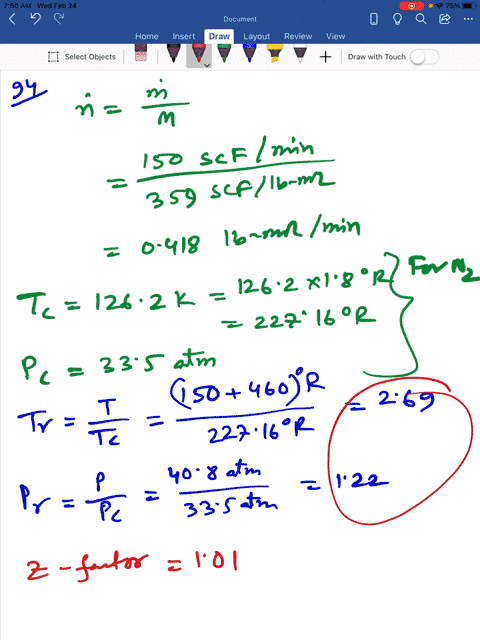 7:50 AM Wed Feb 24
75%
Document
Home Insert Draw Layout Review View
Select Objects
Draw with Touch
94
ṅ = ṁ / M
= 150 SCF/min / 359 SCF/lb-mol
= 0.418 lb-mol/min
Tc = 126.2 K = 126.2 × 1.8 °R
= 227.16 °R
For N2
Pc = 33.5 atm
Tr = T / Tc = (150 + 460) °R / 227.16 °R = 2.69
Pr = P / Pc = 40.8 atm / 33.5 atm = 1.22
z - factor = 1.01